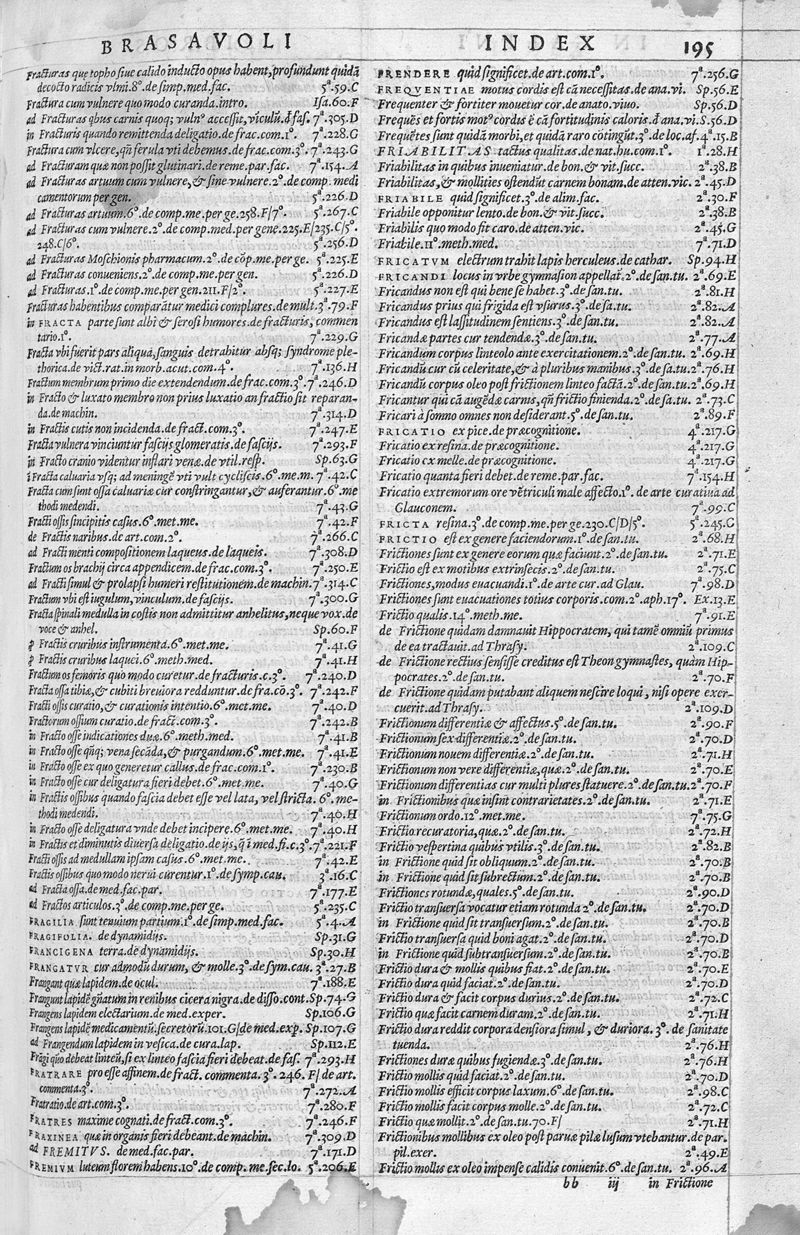 BRASAVOLI INDEX 195
Fracturas quę topho siue calido inducto opus habent, profundunt quidā
decocto radicis vlmi.8°. de simp.med.fac. 5ª.59.C
Fractura cum vulnere quo modo curanda.intro. Isa.60.F
ad Fracturas qbus carnis quoq; vulnᵒ accessit, viculū.d fas. 7ª.305.D
in Fracturis quando remittenda deligatio.de frac.com.1°. 7ª.228.G
Fractura cum vlcere, qñ ferula vti debemus.de frac.com.3°. 7ª.243.G
ad Fracturam quæ non possit glutinari.de reme.par.fac. 7ª.154.A
ad Fracturas artuum cum vulnere, & sine vulnere.2°.de comp. medi
camentorum per gen. 5ª.226.D
ad Fracturas artuum.6°.de comp.me.per ge.258.F/7°. 5ª.267.C
ad Fracturas cum vulnere.2°.de comp.med.per gene.225.E/235.C/5°.
248.C/6°. 5ª.256.D
ad Fracturas Moschionis pharmacum.2°.de cōp.me.per ge. 5ª.225.E
ad Fracturas conueniens.2°.de comp.me.per gen. 5ª.226.D
ad Fracturas.1°.de comp.me.per gen.211.F/2°. 5ª.227.E
Fracturas habentibus comparātur medici complures.de mult.3ª.79.F
in FRACTA parte sunt albi & serosi humores.de fracturis, commen
tario.1°. 7ª.229.G
Fracta vbi fuerit pars aliqua, sanguis detrahitur absq; syndrome ple-
thorica.de vict.rat.in morb.acut.com.4°. 7ª.136.H
Fractum membrum primo die extendendum.de frac.com.3°. 7ª.246.D
in Fracto & luxato membro non prius luxatio an fractio sit reparan-
da.de machin. 7ª.314.D
in Fractis cutis non incidenda.de fract.com.3°. 7ª.247.E
Fracta vulnera vinciuntur fascijs glomeratis.de fascijs. 7ª.293.F
in Fracto cranio videntur inflari venæ.de vtil.resp. Sp.63.G
i Fracta caluaria vsq; ad meningē vti vult cycliscis.6°.me.m. 7ª.42.C
Fracta cum sunt ossa caluariæ cur constringantur, & auferantur.6°.me
thodi medendi. 7ª.43.G
Fracti ossis sincipitis casus.6°.met.me. 7ª.42.F
de Fractis naribus.de art.com.2°. 7ª.266.C
ad Fracti menti compositionem laqueus.de laqueis. 7ª.308.D
Fractum os brachij circa appendicem.de frac.com.3°. 7ª.250.E
ad Fracti simul & prolapsi humeri restitutionem.de machin.7ª.314.C
Fractum vbi est iugulum, vinculum.de fascijs. 7ª.300.G
Fracta spinali medulla in costis non admittitur anhelitus, neque vox.de
voce & anhel. Sp.60.F
p Fractis cruribus instrumenta.6°.met.me. 7ª.41.G
p Fractis cruribus laquei.6°.meth.med. 7ª.41.H
Fractum os femoris quo modo curetur.de fracturis.c.3°. 7ª.240.D
Fracta ossa tibiæ, & cubiti breuiora redduntur.de fra.cō.3°. 7ª.242.F
Fracti ossis curatio, & curationis intentio.6°.met.me. 7ª.40.D
Fractorum ossium curatio.de fract.com.3°. 7ª.242.B
in Fracto osse indicationes duæ.6°.meth.med. 7ª.41.B
in Fracto osse qñq; vena secāda, & purgandum.6°.met.me. 7ª.41.E
in Fracto osse ex quo generetur callus.de frac.com.1°. 7ª.230.B
in Fracto osse cur deligatura fieri debet.6°.met.me. 7ª.40.G
in Fractis ossibus quando fascia debet esse vel lata, vel stricta. 6°.me-
thodi medendi. 7ª.40.H
in Fracto osse deligatura vnde debet incipere.6°.met.me. 7ª.40.H
in Fractis et diminutis diuersa deligatio.de ijs, q̄ i med.fi.c.3°.7ª.221.F
Fracti ossis ad medullam ipsam casus.6°.met.me. 7ª.42.E
Fractis ossibus quo modo nerui curentur.1°.de symp.cau. 3ª.16.C
ad Fracta ossa.de med.fac.par. 7ª.177.E
ad Fractos articulos.3°.de comp.me.per ge. 5ª.235.C
FRAGILIA sunt tenuium partium.1°.de simp.med.fac. 5ª.4.A
FRAGIFOLIA. de dynamidijs. Sp.31.G
FRANCIGENA terra.de dynamidijs. Sp.30.H
FRANGATVR cur admodū durum, & molle.3°.de sym.cau. 3ª.27.B
Frangant quæ lapidem.de ocul. 7ª.188.E
Frangunt lapidē gñatum in renibus cicera nigra.de disso.cont.Sp.74.G
Frangens lapidem electarium.de med.exper. Sp.106.G
Frangens lapidē medicamentū.secretorū.101.G/de med.exp. Sp.107.G
ad Frangendum lapidem in vesica.de cura.lap. Sp.112.E
Fragi quo debeat linteū, si ex linteo fascia fieri debeat.de fas. 7ª.293.H
FRATRARE pro esse affinem.de fract. commenta. 3°. 246. F/ de art.
commenta.3°. 7ª.272.A
Fratratio.de art.com.3°. 7ª.280.F
FRATRES maxime cognati.de fract.com.3°. 7ª.246.F
FRAXINEA quæ in organis fieri debeant.de machin. 7ª.309.D
ad FREMITVS. de med.fac.par. 7ª.171.D
FREMIVM luteum florem habens.10°.de comp. me.sec.lo. 5ª.206.E
PRENDERE quid significet.de art.com.1°. 7ª.256.G
FREQVENTIAE motus cordis est cā necessitas.de ana.vi. Sp.56.E
Frequenter & fortiter mouetur cor.de anato.viuo. Sp.56.D
Frequēs et fortis motᵒ cordis ē cā fortitudinis caloris.d ana.vi.S.56.D
Frequētes sunt quidā morbi, et quidā raro cōtingūt.3°.de loc.af.4ª.15.B
FRIABILITAS tactus qualitas.de nat.hu.com.1°. 1ª.28.H
Friabilitas in quibus inueniatur.de bon.& vit.succ. 2ª.38.B
Friabilitas, & mollities ostendūt carnem bonam.de atten.vic. 2ª.45.D
FRIABILE quid significet.3°.de alim.fac. 2ª.30.F
Friabile opponitur lento.de bon.& vit.succ. 2ª.38.B
Friabilis quo modo fit caro.de atten.vic. 2ª.45.G
Friabile.11°.meth.med. 7ª.71.D
FRICATVM electrum trahit lapis herculeus.de cathar. Sp.94.H
FRICANDI locus in vrbe gymnasion appellat.2°.de san.tu. 2ª.69.E
Fricandus non est qui bene se habet.3°.de san.tu. 2ª.81.H
Fricandus prius qui frigida est vsurus.3°.de sa.tu. 2ª.82.A
Fricandus est lassitudinem sentiens.3°.de san.tu. 2ª.82.A
Fricandæ partes cur tendendæ.3°.de san.tu. 2ª.77.A
Fricandum corpus linteolo ante exercitationem.2°.de san.tu. 2ª.69.H
Fricandū cur cū celeritate, & à pluribus manibus.3°.de sa.tu.2ª.76.H
Fricandū corpus oleo post frictionem linteo factā.2°.de san.tu.2ª.69.H
Fricantur qui cā augēdæ carnis, qñ frictio finienda.2°.de sa.tu. 2ª.73.C
Fricari à somno omnes non desiderant.5°.de san.tu. 2ª.89.F
FRICATIO ex pice.de præcognitione. 4ª.217.G
Fricatio ex resina.de præcognitione. 4ª.217.G
Fricatio cx melle.de præcognitione. 4ª.217.G
Fricatio quanta fieri debet.de reme.par.fac. 7ª.154.H
Fricatio extremorum ore vētriculi male affecto.1°. de arte curatiua ad
Glauconem. 7ª.99.C
FRICTA resina.3°.de comp.me.per ge.230.C/D/5°. 5ª.245.G
FRICTIO est ex genere faciendorum.1°.de san.tu. 2ª.68.H
Frictiones sunt ex genere eorum quæ faciunt.2°.de san.tu. 2ª.71.E
Frictio est ex motibus extrinsecis.2°.de san.tu. 2ª.75.C
Frictiones, modus euacuandi.1°.de arte cur.ad Glau. 7ª.98.D
Frictiones sunt euacuationes totius corporis.com.2°.aph.17°. Ex.13.E
Frictio qualis.14°.meth.me. 7ª.91.E
de Frictione quidam damnauit Hippocratem, qui tamē omniū primus
de ea tractauit.ad Thrasy. 2ª.109.C
de Frictione rectius sensisse creditus est Theon gymnastes, quàm Hip-
pocrates.2°.de san.tu. 2ª.70.F
de Frictione quidam putabant aliquem nescire loqui, nisi opere exer-
cuerit.ad Thrasy. 2ª.109.D
Frictionum differentiæ & affectus.5°.de san.tu. 2ª.90.F
Frictionum sex differentiæ.2°.de san.tu. 2ª.70.D
Frictionum nouem differentiæ.2°.de san.tu. 2ª.71.H
Frictionum non vere differentiæ, quæ.2°.de san.tu. 2ª.70.E
Frictionum differentias cur multi plures statuere.2°.de san.tu.2ª.70.F
in Frictionibus quæ insint contrarietates.2°.de san.tu. 2ª.71.E
Frictionum ordo.12°.met.me. 7ª.75.G
Frictio recuratoria, quæ.2°.de san.tu. 2ª.72.H
Frictio vespertina quibus vtilis.3°.de san.tu. 2ª.82.B
in Frictione quid sit obliquum.2°.de san.tu. 2ª.70.B
in Frictione quid sit subrectum.2°.de san.tu. 2ª.70.B
Frictiones rotundæ, quales.5°.de san.tu. 2ª.90.D
Frictio transuersa vocatur etiam rotunda 2°.de san.tu. 2ª.70.D
in Frictione quid sit transuersum.2°.de san.tu. 2ª.70.B
Frictio transuersa quid boni agat.2°.de san.tu. 2ª.70.D
in Frictione quid subtransuersum.2°.de san.tu. 2ª.70.B
Frictio dura & mollis quibus fiat.2°.de san.tu. 2ª.70.E
Frictio dura quid faciat.2°.de san.tu. 2ª.70.D
Frictio dura & facit corpus durius.2°.de san.tu. 2ª.72.C
Frictio quæ facit carnem duram.2°.de san.tu. 2ª.71.H
Frictio dura reddit corpora densiora simul, & duriora. 3°. de sanitate
tuenda. 2ª.76.H
Frictiones duræ quibus fugiendæ.3°.de san.tu. 2ª.76.H
Frictio mollis quid faciat.2°.de san.tu. 2ª.70.D
Frictio mollis efficit corpus laxum.6°.de san.tu. 2ª.98.C
Frictio mollis facit corpus molle.2°.de san.tu. 2ª.72.C
Frictio quæ mollit.2°.de san.tu.70.F/ 2ª.71.H
Frictionibus mollibus ex oleo post paruæ pilæ lusum vtebantur.de par.
pil.exer. 2ª.49.E
Frictio mollis ex oleo impense calidis conuenit.6°.de san.tu. 2ª.96.A
bb iij in Frictione